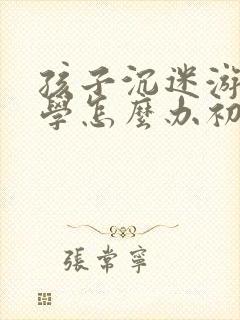 孩子沉迷游
學怎麼办初
張常寧